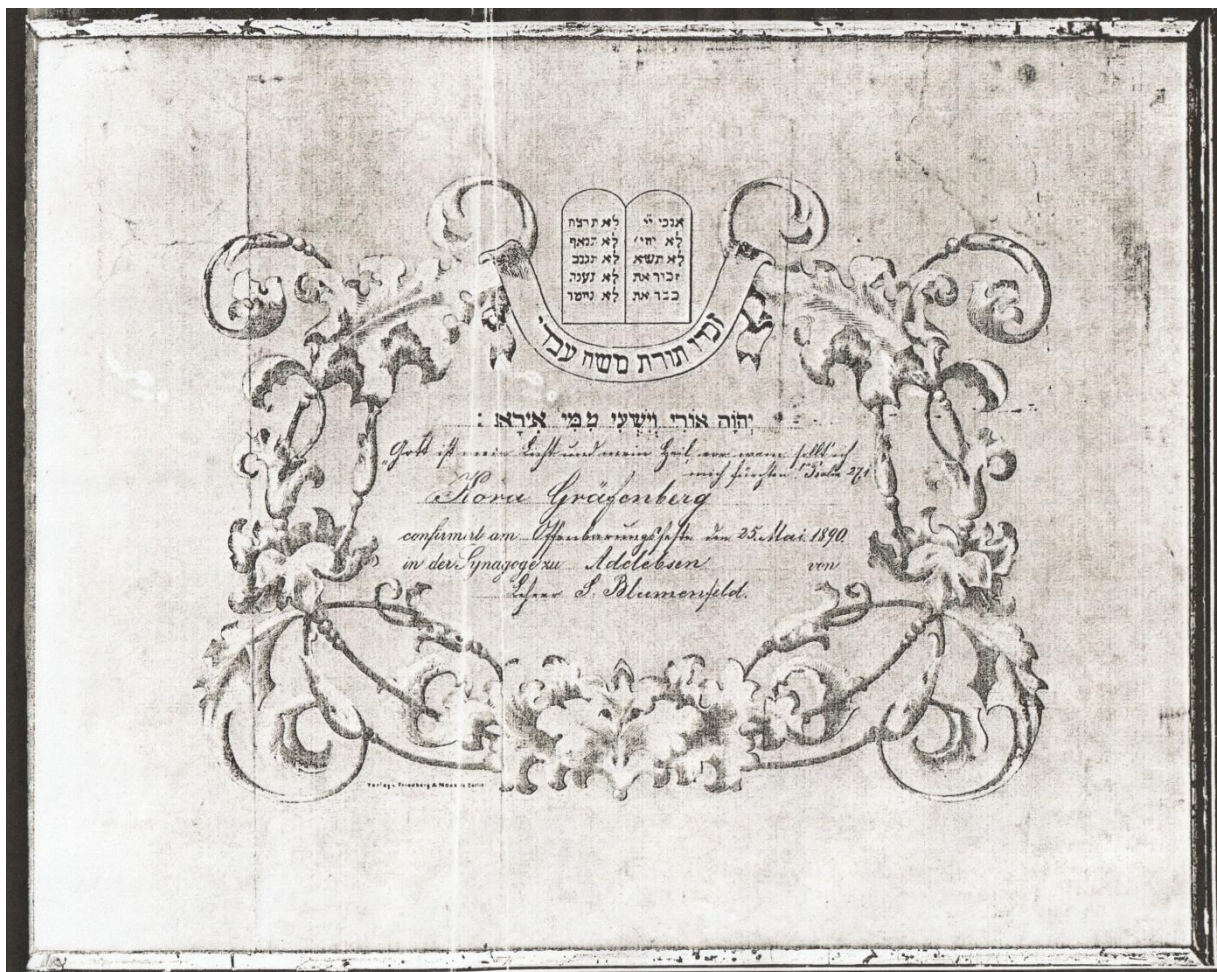 אנכי יי
לא יהי׳
לא תשא
זכור את
כבד את
לא תרצח
לא תנאף
לא תגנב
לא תענה
לא תחמד
זכרו תורת משה עבדי
יְהֹוָה אוֹרִי וְיִשְׁעִי מִמִּי אִירָא :
Gott ist mein Licht und mein Heil, vor wem sollt ich
mich fürchten! Psalm 27,1
Kora Gräfenberg
confirmirt am Offenbarungsfeste den 25. Mai 1890.
in der Synagoge zu Adelebsen von
Lehrer S. Blumenfeld.
Verlag v. Friedberg & Mode in Berlin